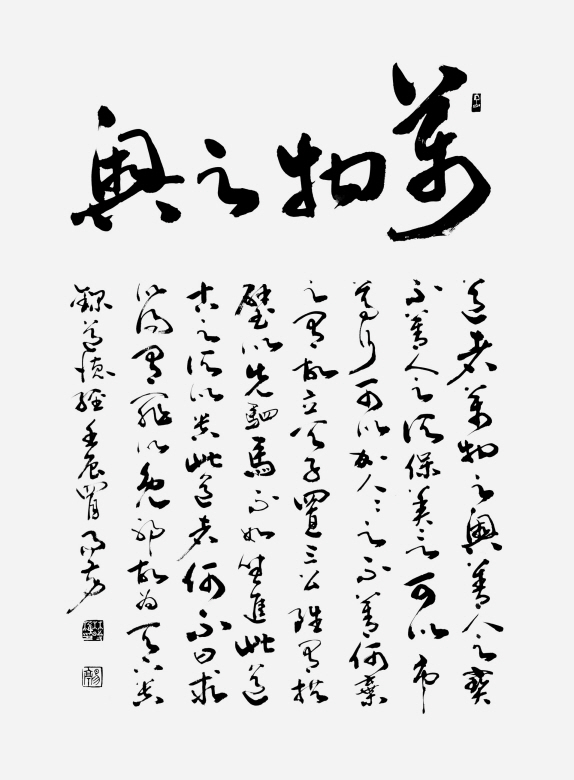 萬物之奧
道者萬物之奧善人之寶
不善人之所保美言可以市
尊行可以加人〻之不善何棄
之有故立天子置三公雖有拱
璧以先駟馬不如坐進此道
古之所以貴此道者何不曰求
以得有罪以免邪故為天下貴
錄道德經壬辰